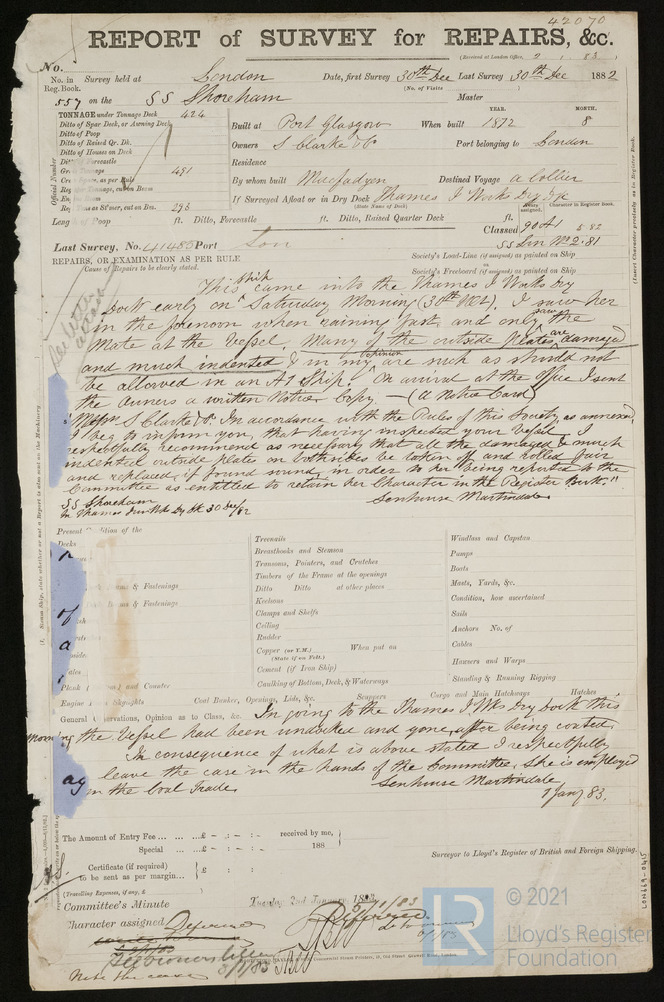 42070
REPORT of SURVEY for REPAIRS, &c.
(Received at London Office, 2 1 83)
No.
No. in Survey held at London Date, first Survey 30th Dec Last Survey 30th Dec 1882
Reg. Book. (No. of Visits) Master
557 on the SS Shoreham
TONNAGE under Tonnage Deck 424
Ditto of Spar Deck, or Awning Deck
Ditto of Poop
Ditto of Raised Qr. Dk.
Ditto of Houses on Deck
Ditto of Forecastle
Gross Tonnage 491
Register Tonnage, cut on Beam
298
Official Number
YEAR. MONTH.
Built at Port Glasgow When built 1872 8
Owners S Clarke & Co Port belonging to London
Residence
By whom built Macfadyen Destined Voyage a Collier
If Surveyed Afloat or in Dry Dock Thames I Works Dry Dk
(State Name of Dock)
Length of Poop ft. Ditto, Forecastle ft. Ditto, Raised Quarter Deck ft.
Classed 90A1 5 82
SS Lon No 2. 81
Last Survey, No. 41485 Port Lon
REPAIRS, OR EXAMINATION AS PER RULE
Causes of Repairs to be clearly stated.
Society's Load-Line (if assigned) as painted on Ship
Society's Freeboard (if assigned) as painted on Ship
This ship came into the Thames I Works dry
dock early on Saturday Morning (30th Ult). I saw her
in the forenoon when raining fast and only saw the
Mate at the Vessel. Many of the outside plates are damaged
and much indented & in my opinion are such as should not
be allowed in an A1 Ship. On arrival at the Office I sent
the Owners a written Notice Copy — (A Notice Card)
"Messrs S Clarke & Co. In accordance with the Rules of this Society as annexed,
I beg to inform you, that having inspected your Vessel I
respectfully recommend as necessary that all the damaged & much
indented outside plates on both sides be taken off and rolled fair
and replaced, if found sound, in order to her being reported to the
Committee as entitled to retain her Character in the Register Book."
SS Shoreham Senhouse Martindale
In Thames Iron Wks Dy Dk 30 Dec/82
Present Condition of the
Decks
Treenails
Breasthooks and Stemson
Transoms, Pointers, and Crutches
Timbers of the Frame at the openings
Ditto Ditto at other places
Keelsons
Clamps and Shelfs
Ceiling
Rudder
Copper (or Y.M.) When put on
(State if on Felt.)
Cement (if Iron Ship)
Caulking of Bottom, Deck, & Waterways
Windlass and Capstan
Pumps
Boats
Masts, Yards, &c.
Condition, how ascertained
Sails
Anchors No. of
Cables
Hawsers and Warps
Standing & Running Rigging
Engine Skylights Coal Bunker, Openings, Lids, &c. Scuppers Cargo and Main Hatchways Hatches
General Observations, Opinion as to Class, &c. In going to the Thames I. Wks Dry Dock this
morning the Vessel had been undocked and gone, after being coated
In consequence of what is above stated I respectfully
leave the case in the hands of the Committee, she is employed
in the Coal Trade. Senhouse Martindale
1 Jany 83.
The Amount of Entry Fee ... £ received by me,
Special ... £ 188
Certificate (if required) to be sent as per margin... £
(Travelling Expenses, if any, £ )
Surveyor to Lloyd's Register of British and Foreign Shipping.
Committee's Minute Tuesday 2nd January 1883
Character assigned Deferred
Note the case
LON669-0415
© 2021
LR
Lloyd's Register
Foundation